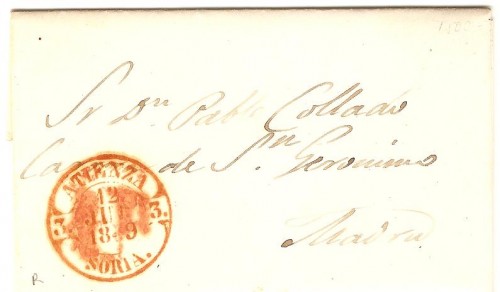 Sr Dn Pablo Collado
de Sn. Geronimo
Madrid
ATIENZA
3 3
12
18 9
SORIA.
R